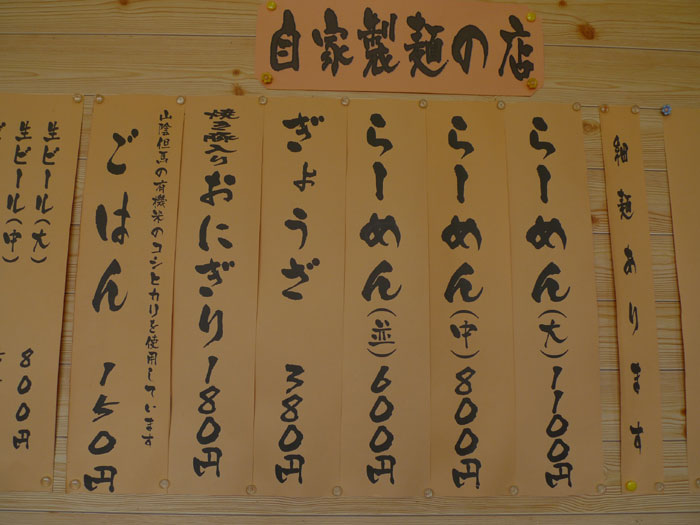 自家製麺の店
細麺あります
らーめん(大) 1100円
らーめん(中) 800円
らーめん(並) 600円
ぎょうざ 380円
焼き豚入りおにぎり 180円
山陰但馬の有機米のコシヒカリを使用しています
ごはん 150円
生ビール(大) 800円
生ビール(中)